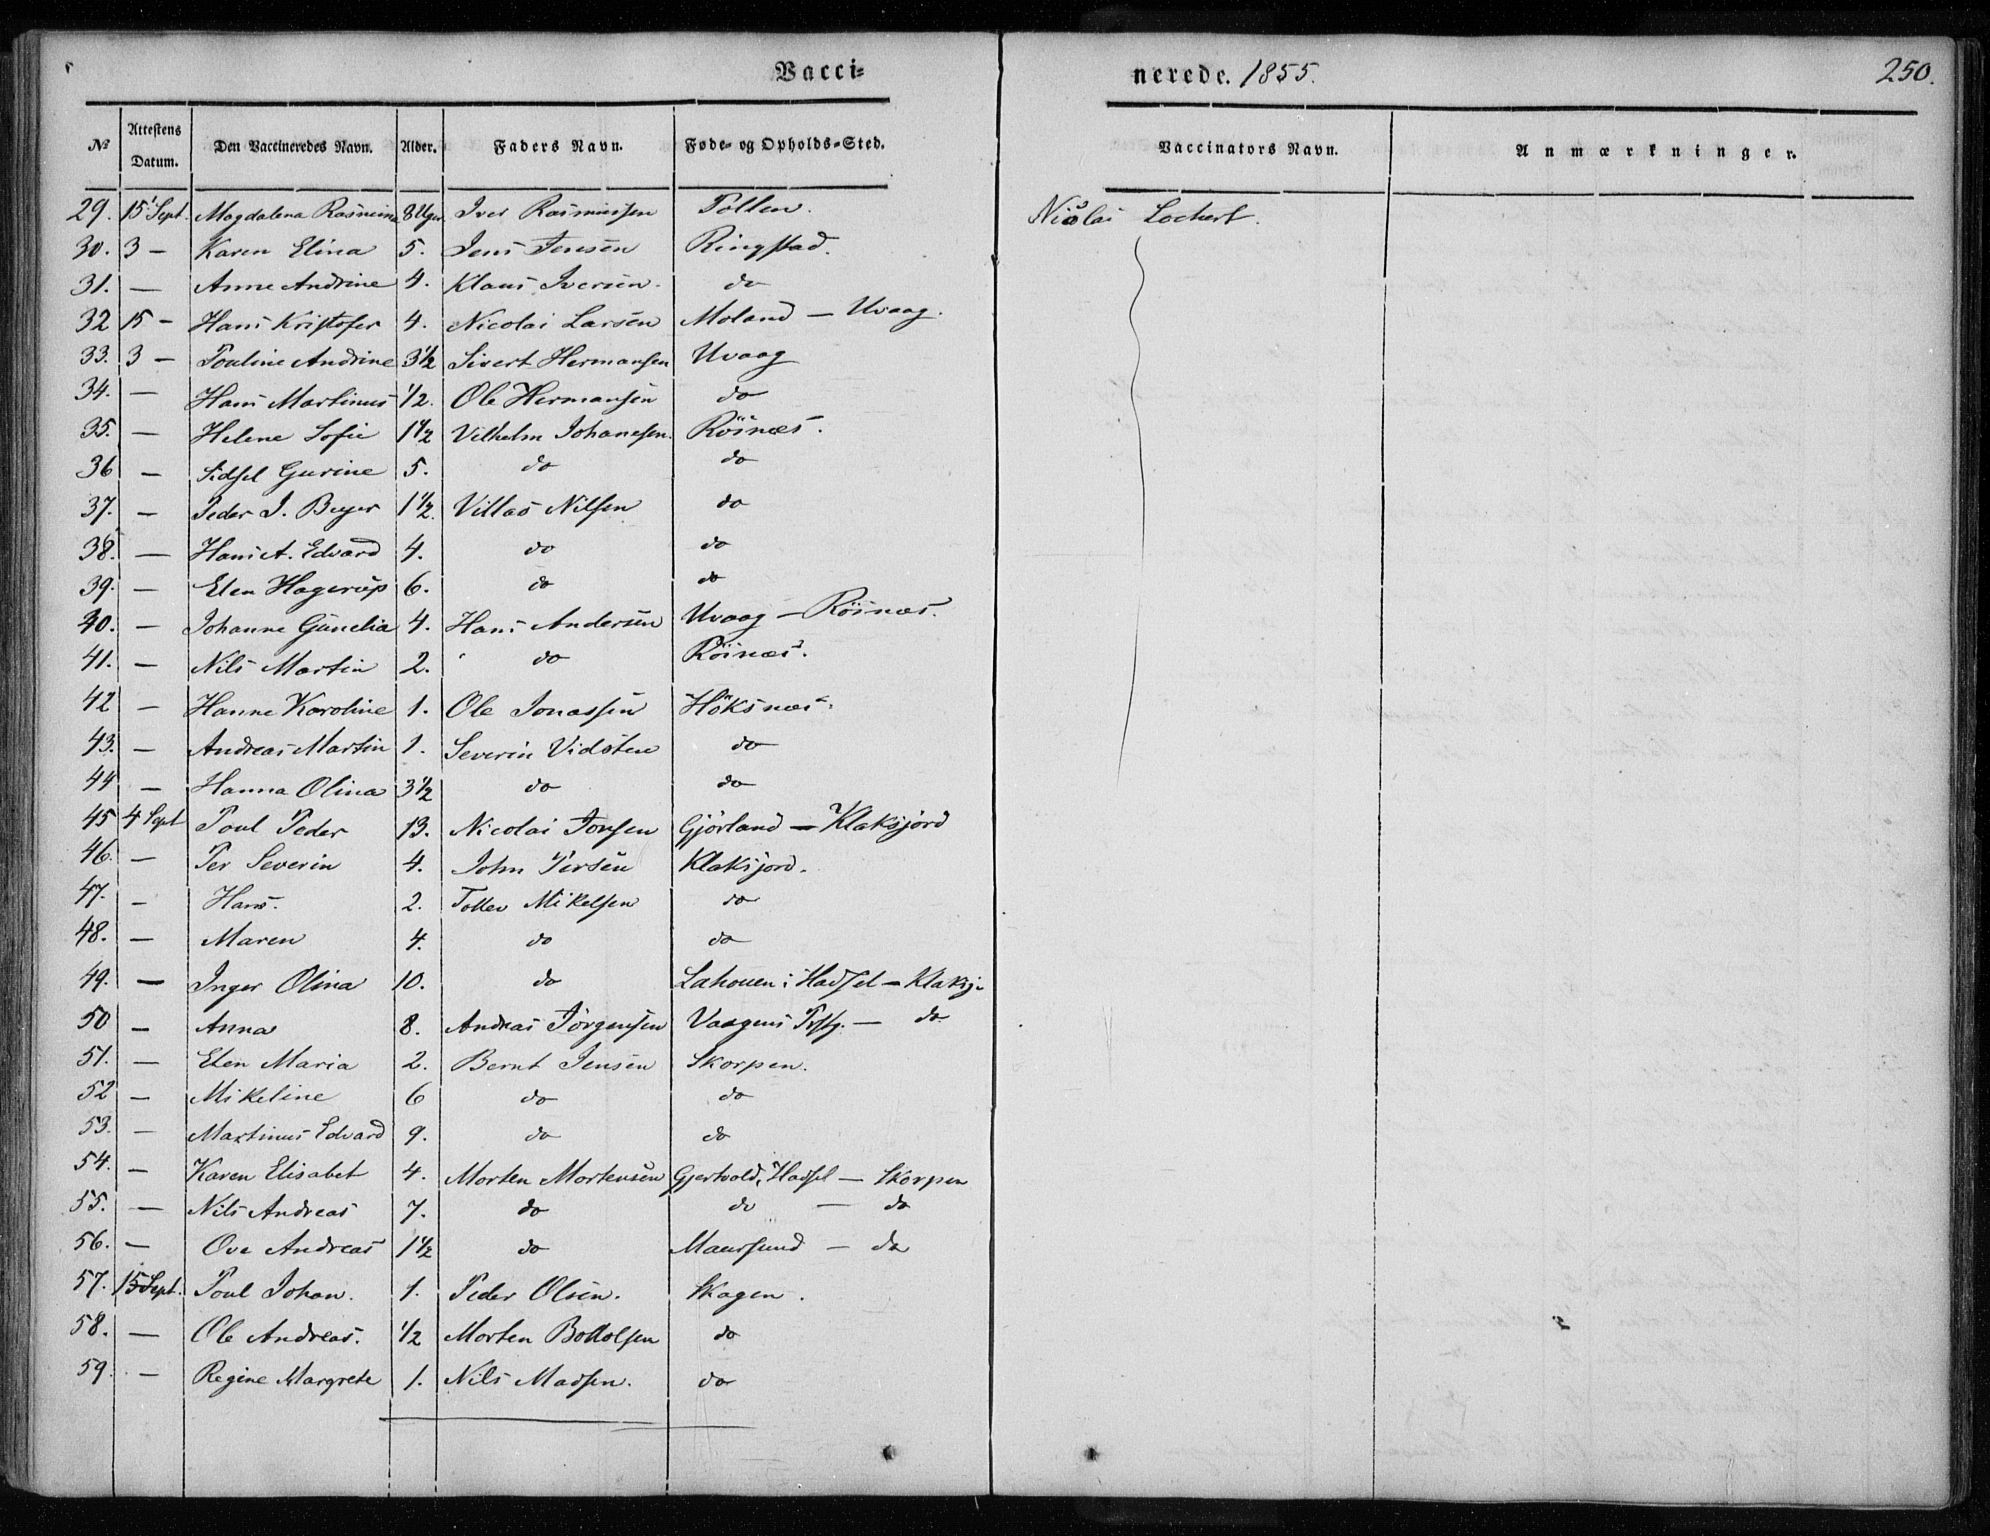 Vacci- nerede. 1855. 250.
№ Attestens Datum. Den Vaccineredes Navn. Alder. Faders Navn. Føde- og Opholds-Sted. Vaccinators Navn. Anmærkninger.
29. 15 Sept. Magdalena Rasmina 8 Uger Iver Rasmussen Tollen. Nicolai Lochert.
30. 3 — Karen Elina 5. Jens Jensen Ringstad.
31. — Anne Andrine 4. Klaus Iversen. do
32 15 — Hans Kristofer 4. Nicolai Larsen Moland — Uvaag.
33. 3 — Pouline Andrine 3½ Sivert Hermansen Uvaag
34. — Hans Martinus ½. Ole Hermansen do
35. — Helene Sofie 1½ Vilhelm Johanesen. Röines.
36 — Sidsel Gurine 5. do do
37. — Peder J. Beyer 1½. Villas Nilsen do
38. — Hans A. Edvard 4. do do
39. — Elen Hagerup 6. do do
40. — Johanne Gunelia 4. Hans Andersen Uvaag — Röinæs.
41. — Nils Martin 2. do Röinæs.
42 — Hanne Karoline 1. Ole Jonassen Höksnæs.
43. — Andreas Martin 1. Severin Vidsten do
44 — Hanna Olina 3½ do do
45 4 Sept Poul Peder 13. Nicolai Jonsen Gjörland — Klaksjord
46. — Per Severin 4. John Persen Klaksjord.
47. — Hans. 2. Tollev Mikelsen do
48. — Maren 4. do do
49. — Inger Olina 10. do Lahouen i Hadsel — Klaksj.
50 — Anna 8. Andreas Jörgensen Vaagens Prstg. — do
51. — Elen Maria 2. Bernt Jensen Skorpen.
52 — Mikeline 6 do do
53. — Martinus Edvard 9. do do
54. — Karen Elisabet 4. Morten Mortensen Gjertvold, Hadsel — Skorpen
55. — Nils Andreas 7. do do — do
56. — Ove Andreas 1½ do Maursund — do
57. 15 Sept. Poul Johan. 1. Peder Olsen. Skagen.
58. — Ole Andreas. ½ Morten Bottolsen do
59. — Regine Margrete 1. Nils Madsen. do